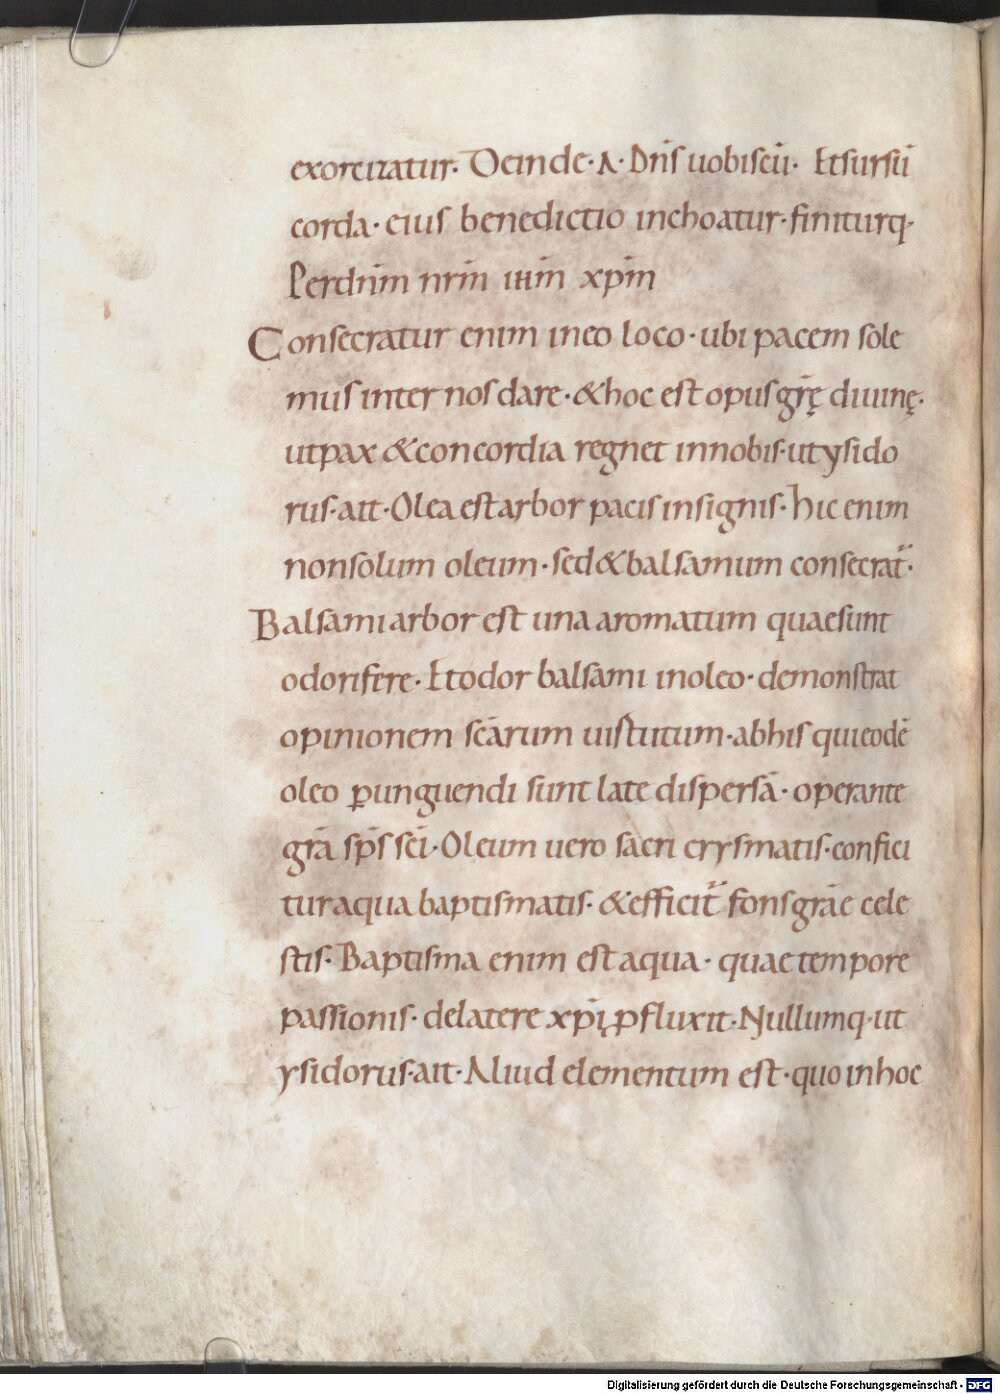 exorcizatur· Deinde·A· Dn̄s uobiscū· Et sursū
corda· eius benedictio inchoatur· finiturq·
Per dn̄m nr̄m ihm̄ xpm̄
Consecratur enim in eo loco· ubi pacem sole
mus inter nos dare· & hoc est opus gr̄ę diuinę·
ut pax & concordia regnet in nobis· ut ysido
rus· ait· Olea est arbor pacis insignis· hic enim
non solum oleum· sed & balsamum consecrat̄·
Balsami arbor est una aromatum quae sunt
odorifere· Et odor balsami in oleo· demonstrat
opinionem scārum uistutum· ab his qui eodē
oleo ꝑunguendi sunt late dispersā· operante
grā sp̄s sc̄i· Oleum uero sacri crysmatis· confici
tur aqua baptismatis· & efficit̄ fons grāe cele
stis· Baptisma enim est aqua· quae tempore
passionis· de latere xp̄i ꝓfluxit· Nullumq· ut
ysidorus· ait· Aliud elementum est· quo in hoc
Digitalisierung gefördert durch die Deutsche Forschungsgemeinschaft - DFG